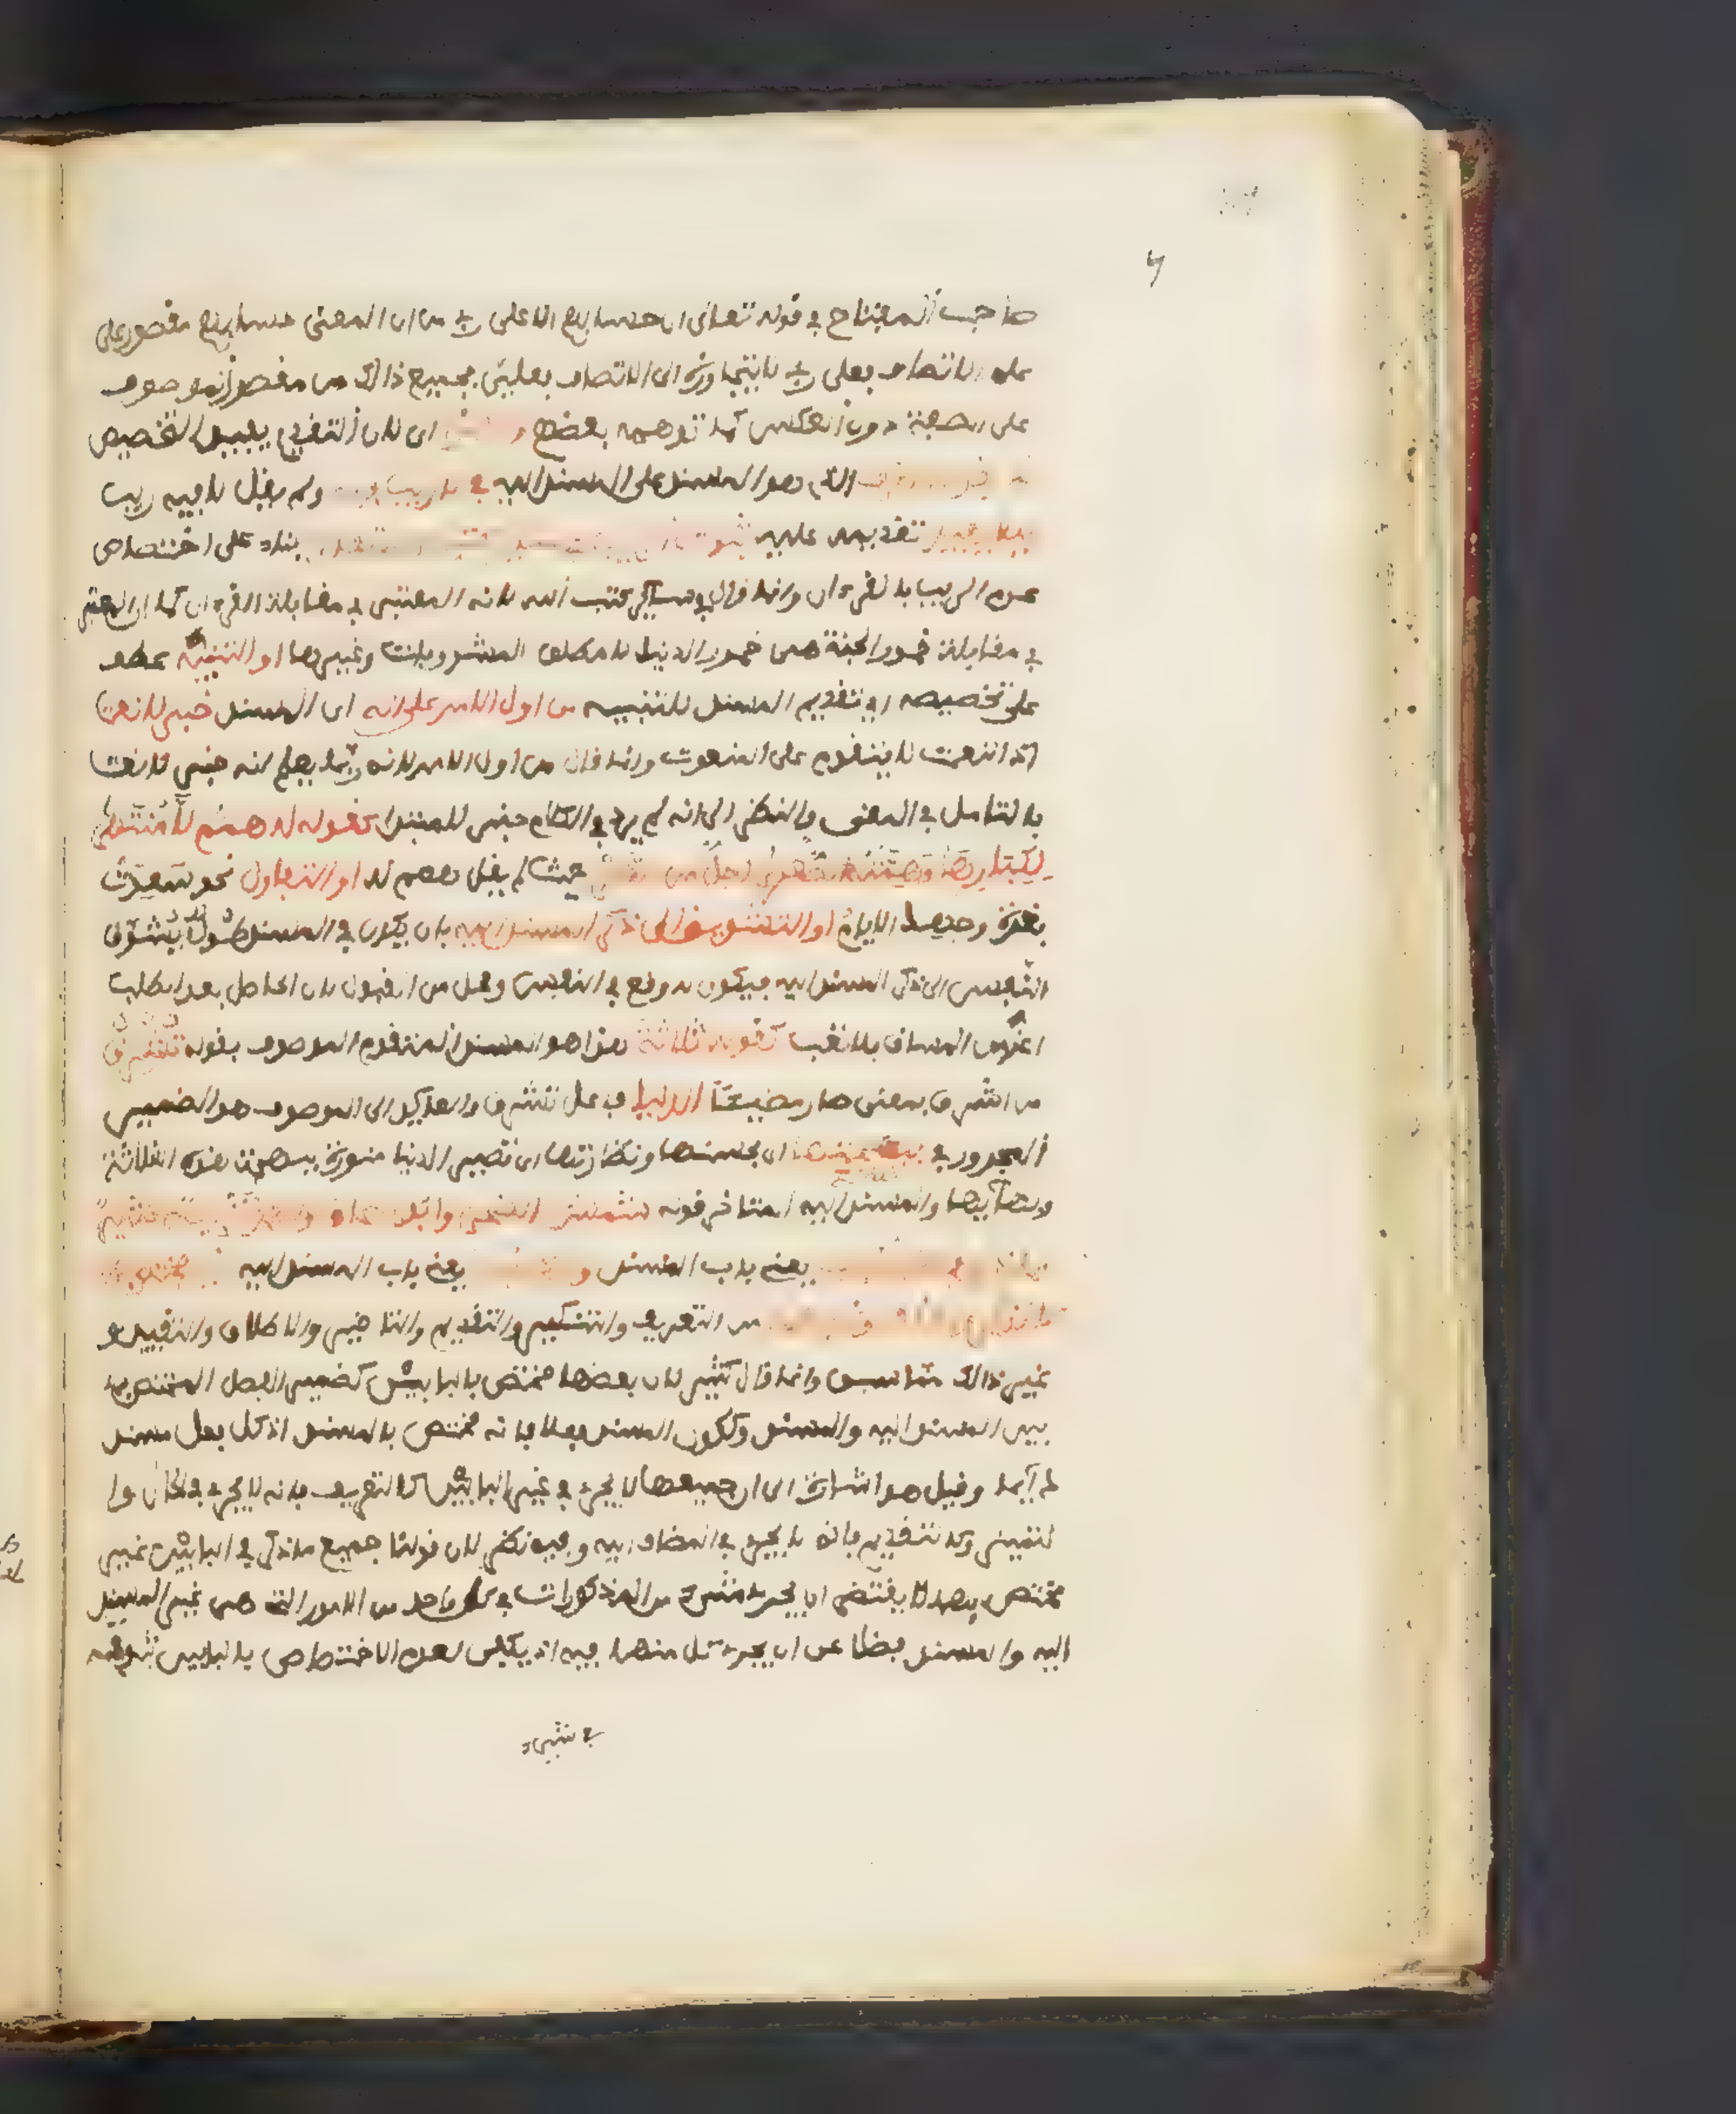 صاحب المفتاح في قوله تعالى ان حسابهم الا على ربي من ان المعنى حسابهم مقصور على
على الاتصاف بعلى ربي لا يتجاوزه الى الاتصاف بعلي فجميع ذالك من قصر الموصوف
على الصفة دون العكس كما توهمه بعضهم اى لان التقديم يفيد التخصيص
الذى هو المسند على المسند اليه في لا ريب فيه ولم يقل لا فيه ريب
ليلا يفيد تقديمه عليه ثبوت بناء على اختصاص
عدم الريب بالقرءان وانما قال في سائر كتب الله لانه المعتبر في مقابلة القرءان كما ان المعتبر
في مقابلة خمور الجنة هى خمور الدنيا لا مطلق المشروبات وغيرها او التنبيه عطف
على تخصيصه اى تقديم المسند للتنبيه من اول الامر على انه اى المسند خبر لا نعت
اذ النعت لا يتقدم على المنعوت وانما قال من اول الامر لانه ربما يعلم انه خبر لا نعت
بالتامل في المعنى والنظر الى انه لم يرد في الكلام خبر للمبتدا كقوله له همم لا منتهى
لكبارها وهمته الصغرى اجل من حيث لم يقل همم له او التفاول نحو سعدت
بغرة وجهك الايام او التشويق الى ذكر المسند اليه بان يكون في المسند طول يشوق
النفس الى ذكر المسند اليه فيكون له وقع في النفس ومحل من القبول لان الحاصل بعد الطلب
اعز من المنساق بلا تعب كقوله ثلاثة هذا هو المسند المتقدم الموصوف بقوله تشرق
من اشرق بمعنى صار مضيئا الدنيا فاعل تشرق والعايد الى الموصوف هو الضمير
المجرور في ببهجتها اى بحسنها ونضارتها اى تصير الدنيا منورة ببهجة هذه الثلاثة
وبهايها والمسند اليه المتاخر قوله شمس الضحى وابو
يعني باب المسند و يعني باب المسند اليه
من التعريف والتنكير والتقديم والتاخير والاطلاق والتقييد و
غير ذالك مما سبق وانما قال كثير لان بعضها مختص بالبابين كضمير الفصل المختص بما
بين المسند اليه والمسند وككون المسند فعلا فانه مختص بالمسند اذ كل فعل مسند
دايما وقيل هو اشارة الى ان جميعها لا يجرى في غير البابين كالتعريف فانه لا يجرى في الحال وا
لتمييز وكالتقديم فانه لا يجرى في المضاف اليه وفيه نظر لان قولنا جميع ما ذكر في البابين غير
مختص بهما لا يقتضى ان يجرى شىء من المذكورات في كل واحد من الامور التى هى غير المسند
اليه والمسند فضلا عن ان يجرى كل منها فيه اذ يكفى لعدم الاختصاص بالبابين ثبوته
في شىء